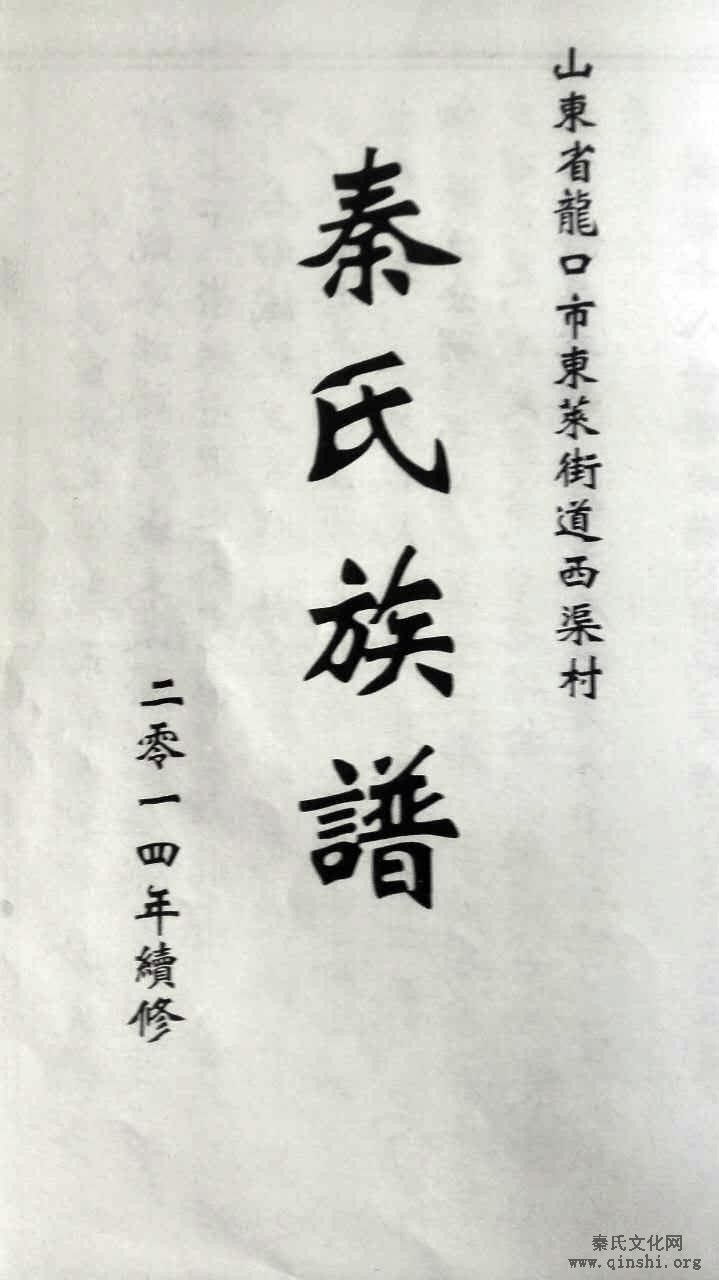 山東省龍口市東萊街道西渠村
秦氏族譜
二零一四年續修
秦氏文化网
www.qinshi.org